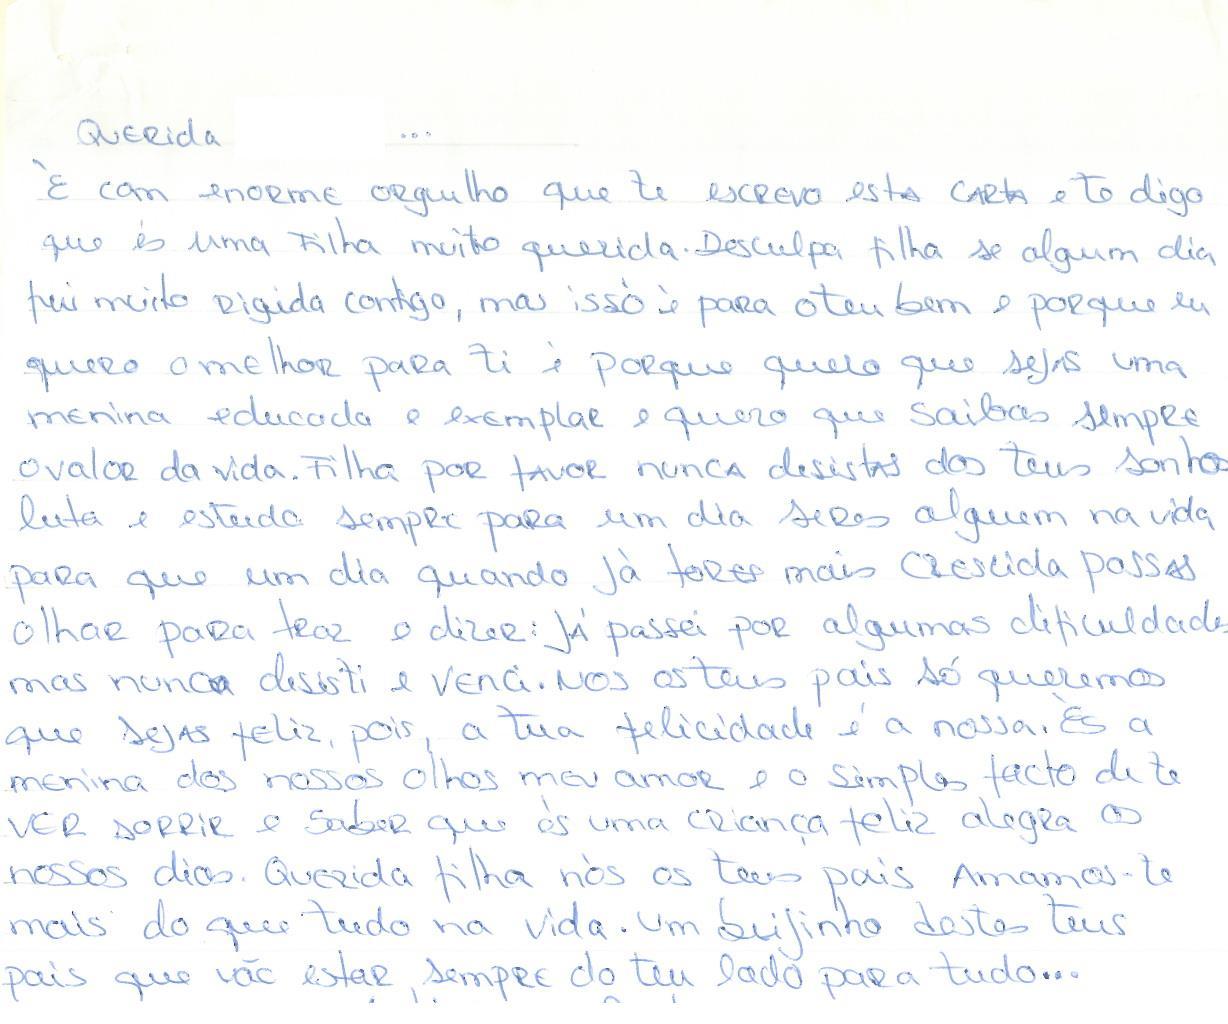 Querida ...
È com enorme orgulho que te escrevo esta carta e to digo
que és uma Filha muito querida. Desculpa filha se algum dia
fui muito rigida contigo, mas issò è para o teu bem e porque eu
quero o melhor para ti è porque quero que sejas uma
menina educada e exemplar e quero que saibas sempre
o valor da vida. Filha por favor nunca desistas dos teus sonhos
luta e estuda sempre para um dia seres alguem na vida
para que um dia quando jà fores mais crescida passas
olhar para traz e dizer: Já passei por algumas dificuldades
mas nunca desisti e venci. Nos os teus pais só queremos
que sejas feliz, pois, a tua felicidade é a nossa. Ès a
menina dos nossos olhos meu amor e o simples facto de te
ver sorrir e saber que és uma criança feliz alegra os
nossos dias. Querida filha nòs os teus pais Amamos-te
mais do que tudo na vida. Um beijinho destes teus
pais que vão estar sempre do teu lado para tudo...